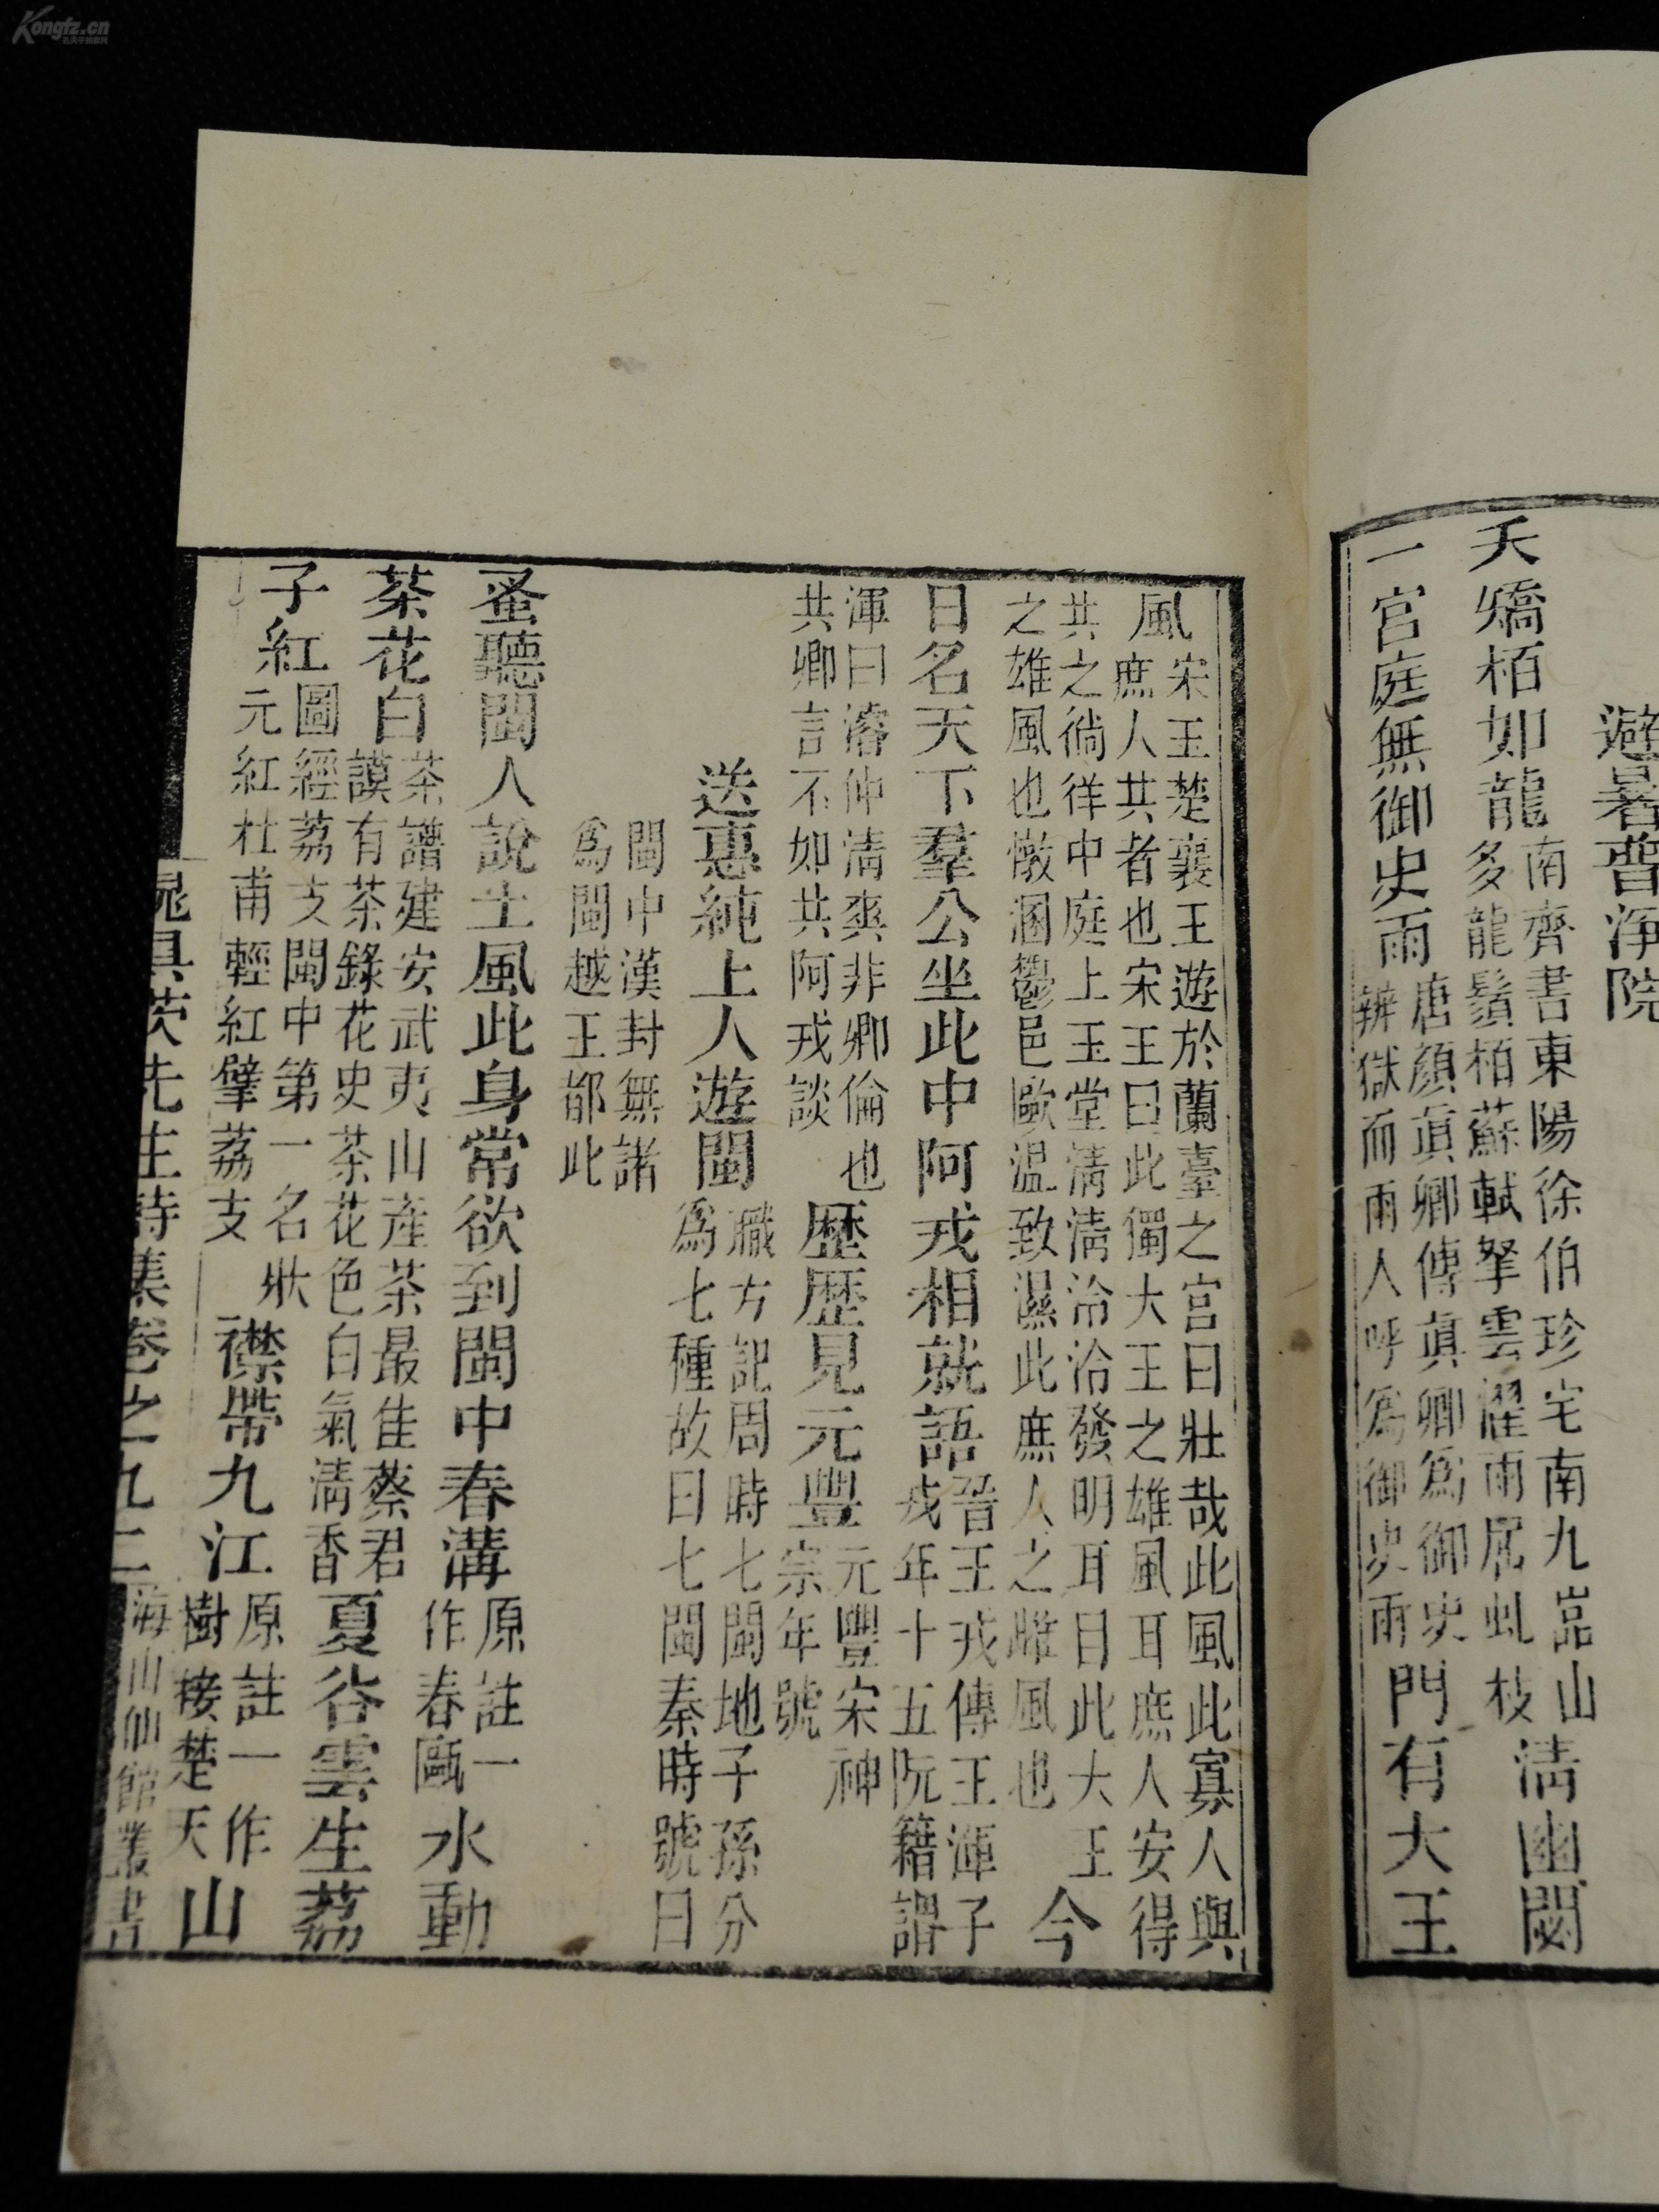 Kongfz.cn
避暑普淨院
夭矯栢如龍
南齊書東陽徐伯珍宅南九嵓山
多龍鬚栢蘇軾拏雲濯雨屈虬枝
清幽閟
一宮庭無御史雨
唐顔眞卿傳眞卿爲御史
辨獄而雨雨人呼爲御史雨
門有大王
風
宋玉楚襄王遊於蘭臺之宮曰壯哉此風此寡人與
庶人共者也宋玉曰此獨大王之雄風耳庶人安得
共之徜徉中庭上玉堂清清泠泠發明耳目此大王
之雄風也憞溷鬱邑歐温致濕此庶人之雌風也
今
日名天下羣公坐此中阿戎相就語
晉王戎傳王渾子
戎年十五阮籍謂
渾曰濬仲清爽非卿倫也
共卿言不如共阿戎談
歴歴見元豐
元豐宋神
宗年號
送惠純上人遊閩
職方記周時七閩地子孫分
爲七種故曰七閩秦時號曰
閩中漢封無諸
爲閩越王都此
蚤聽閩人說土風此身常欲到閩中春溝
原註一
作春甌
水動
茶花白
茶譜建安武夷山産茶最佳蔡君
謨有茶錄花史茶花色白氣清香
夏谷雲生荔
子紅
圖經荔支閩中第一名狀
元紅杜甫輕紅擘荔支
襟帶九江
原註一作
樹接楚天
山
晁具茨先生詩集卷之九 二 海山仙館叢書